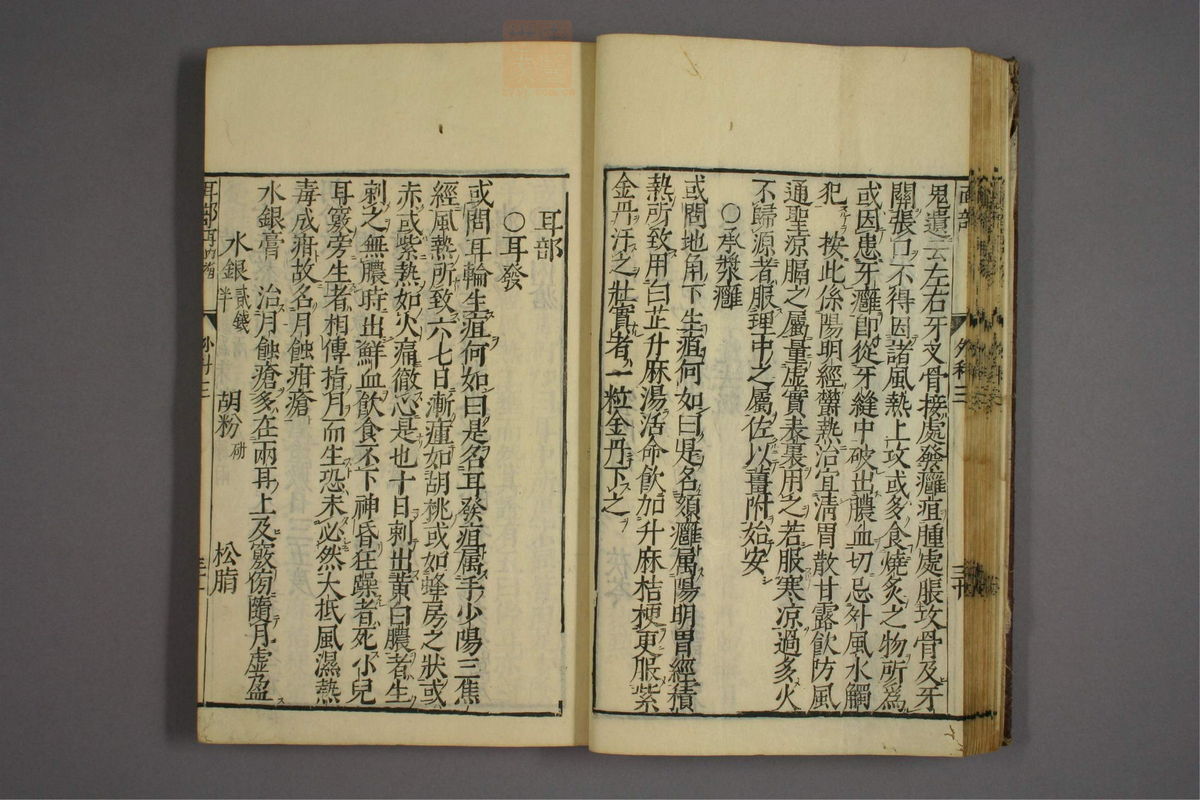 面部
外科三
三十
鬼遺云左右牙叉骨接處發癰疽腫處脹攻骨及牙
關張口不得因諸風熱上攻或多食燒炙之物所爲
或因患牙癰卽從牙縫中破出膿血切忌外風水觸
犯 按此係陽明經欝熱治宜淸胃散甘露飮防風
通聖涼膈之屬量虛實表裏用之若服寒凉過多火
不歸源者服理中之屬佐以薑附始安
○承漿癰
或問地角下生疽何如曰是名頦癰屬陽明胃經積
熱所致用白芷升麻湯活命飮加升麻桔梗更服紫
金丹汗之壯實者一粒金丹下之
耳部
○耳發
或問耳輪生疽何如曰是名耳發疽属手少陽三焦
經風熱所致六七日漸瘇如胡桃或如蜂房之狀或
赤或紫熱如火痛徹心是也十日刺出黃白膿者生
刺之無膿時出鮮血飮食不下神昏狂躁者死小兒
耳竅旁生者相傳指月而生恐未必然大抵風濕熱
毒成疳故名月蝕疳瘡
水銀膏 治月蝕瘡多在兩耳上及竅傍隨月虛盈
水銀貳錢半 胡粉研 松脂
耳部